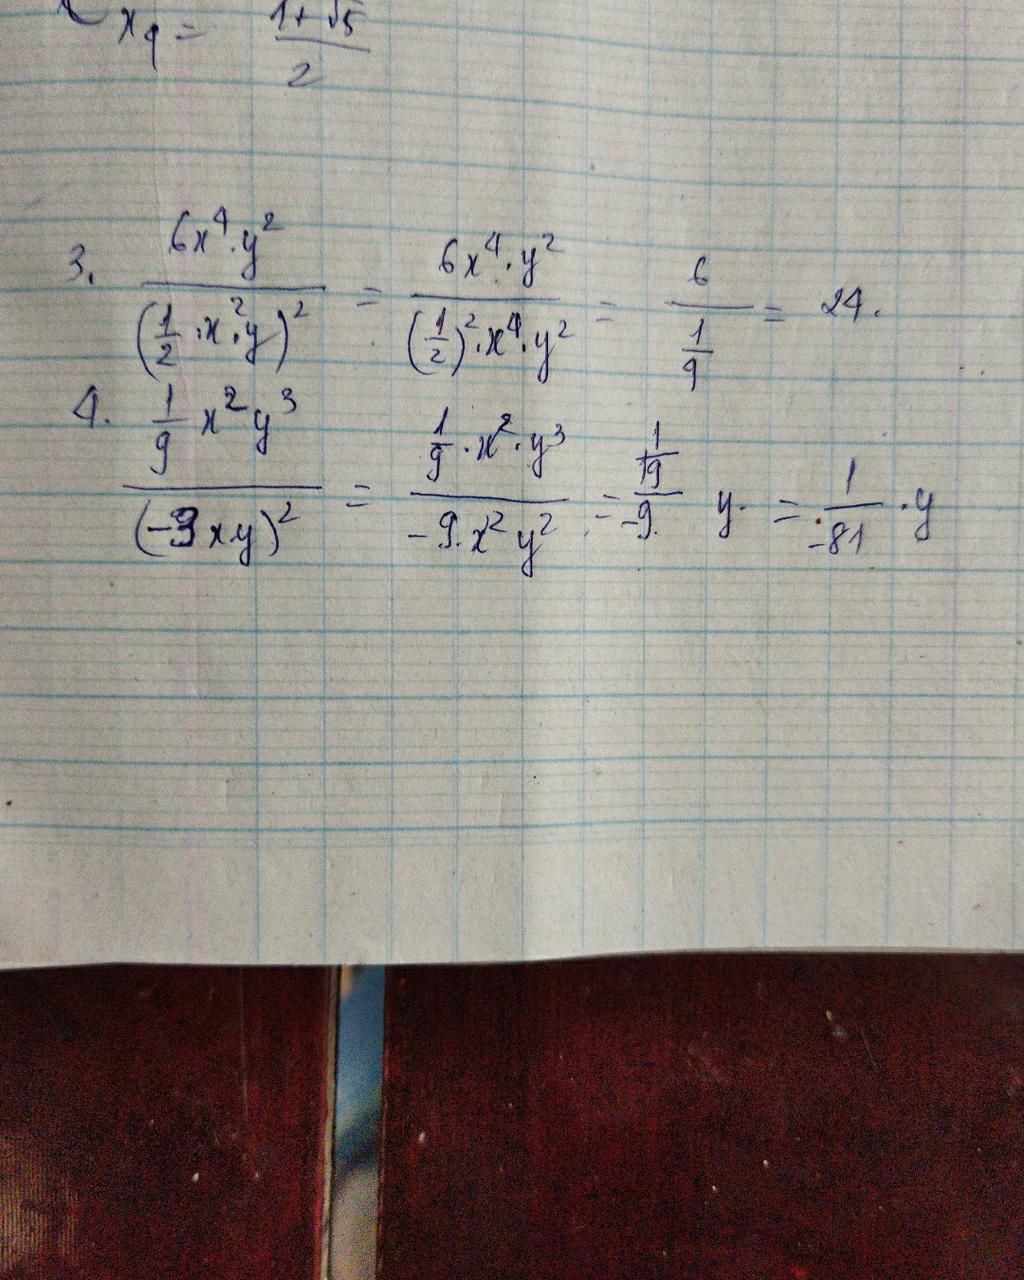 x₄ = (1+√5)/2
3. (6x⁴·y²)/((1/2·x²·y)²) = (6x⁴·y²)/((1/2)²·x⁴·y²) = 6/(1/4) = 24.
4. (1/9 x²y³)/((-3xy)²) = (1/9·x²·y³)/(-9·x²y²) = (1/9)/(-9) y = 1/(-81)·y